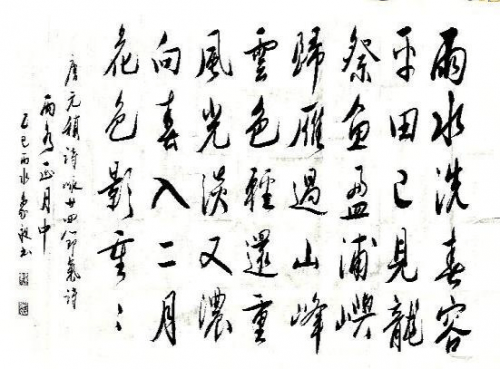 雨水洗春容
平田已見龍
祭魚盈浦嶼
歸雁過山峰
雲色輕還重
風光淡又濃
向春入二月
花色影重〻
唐元稹詩咏廿四節氣詩
雨水正月中
乙巳雨水書